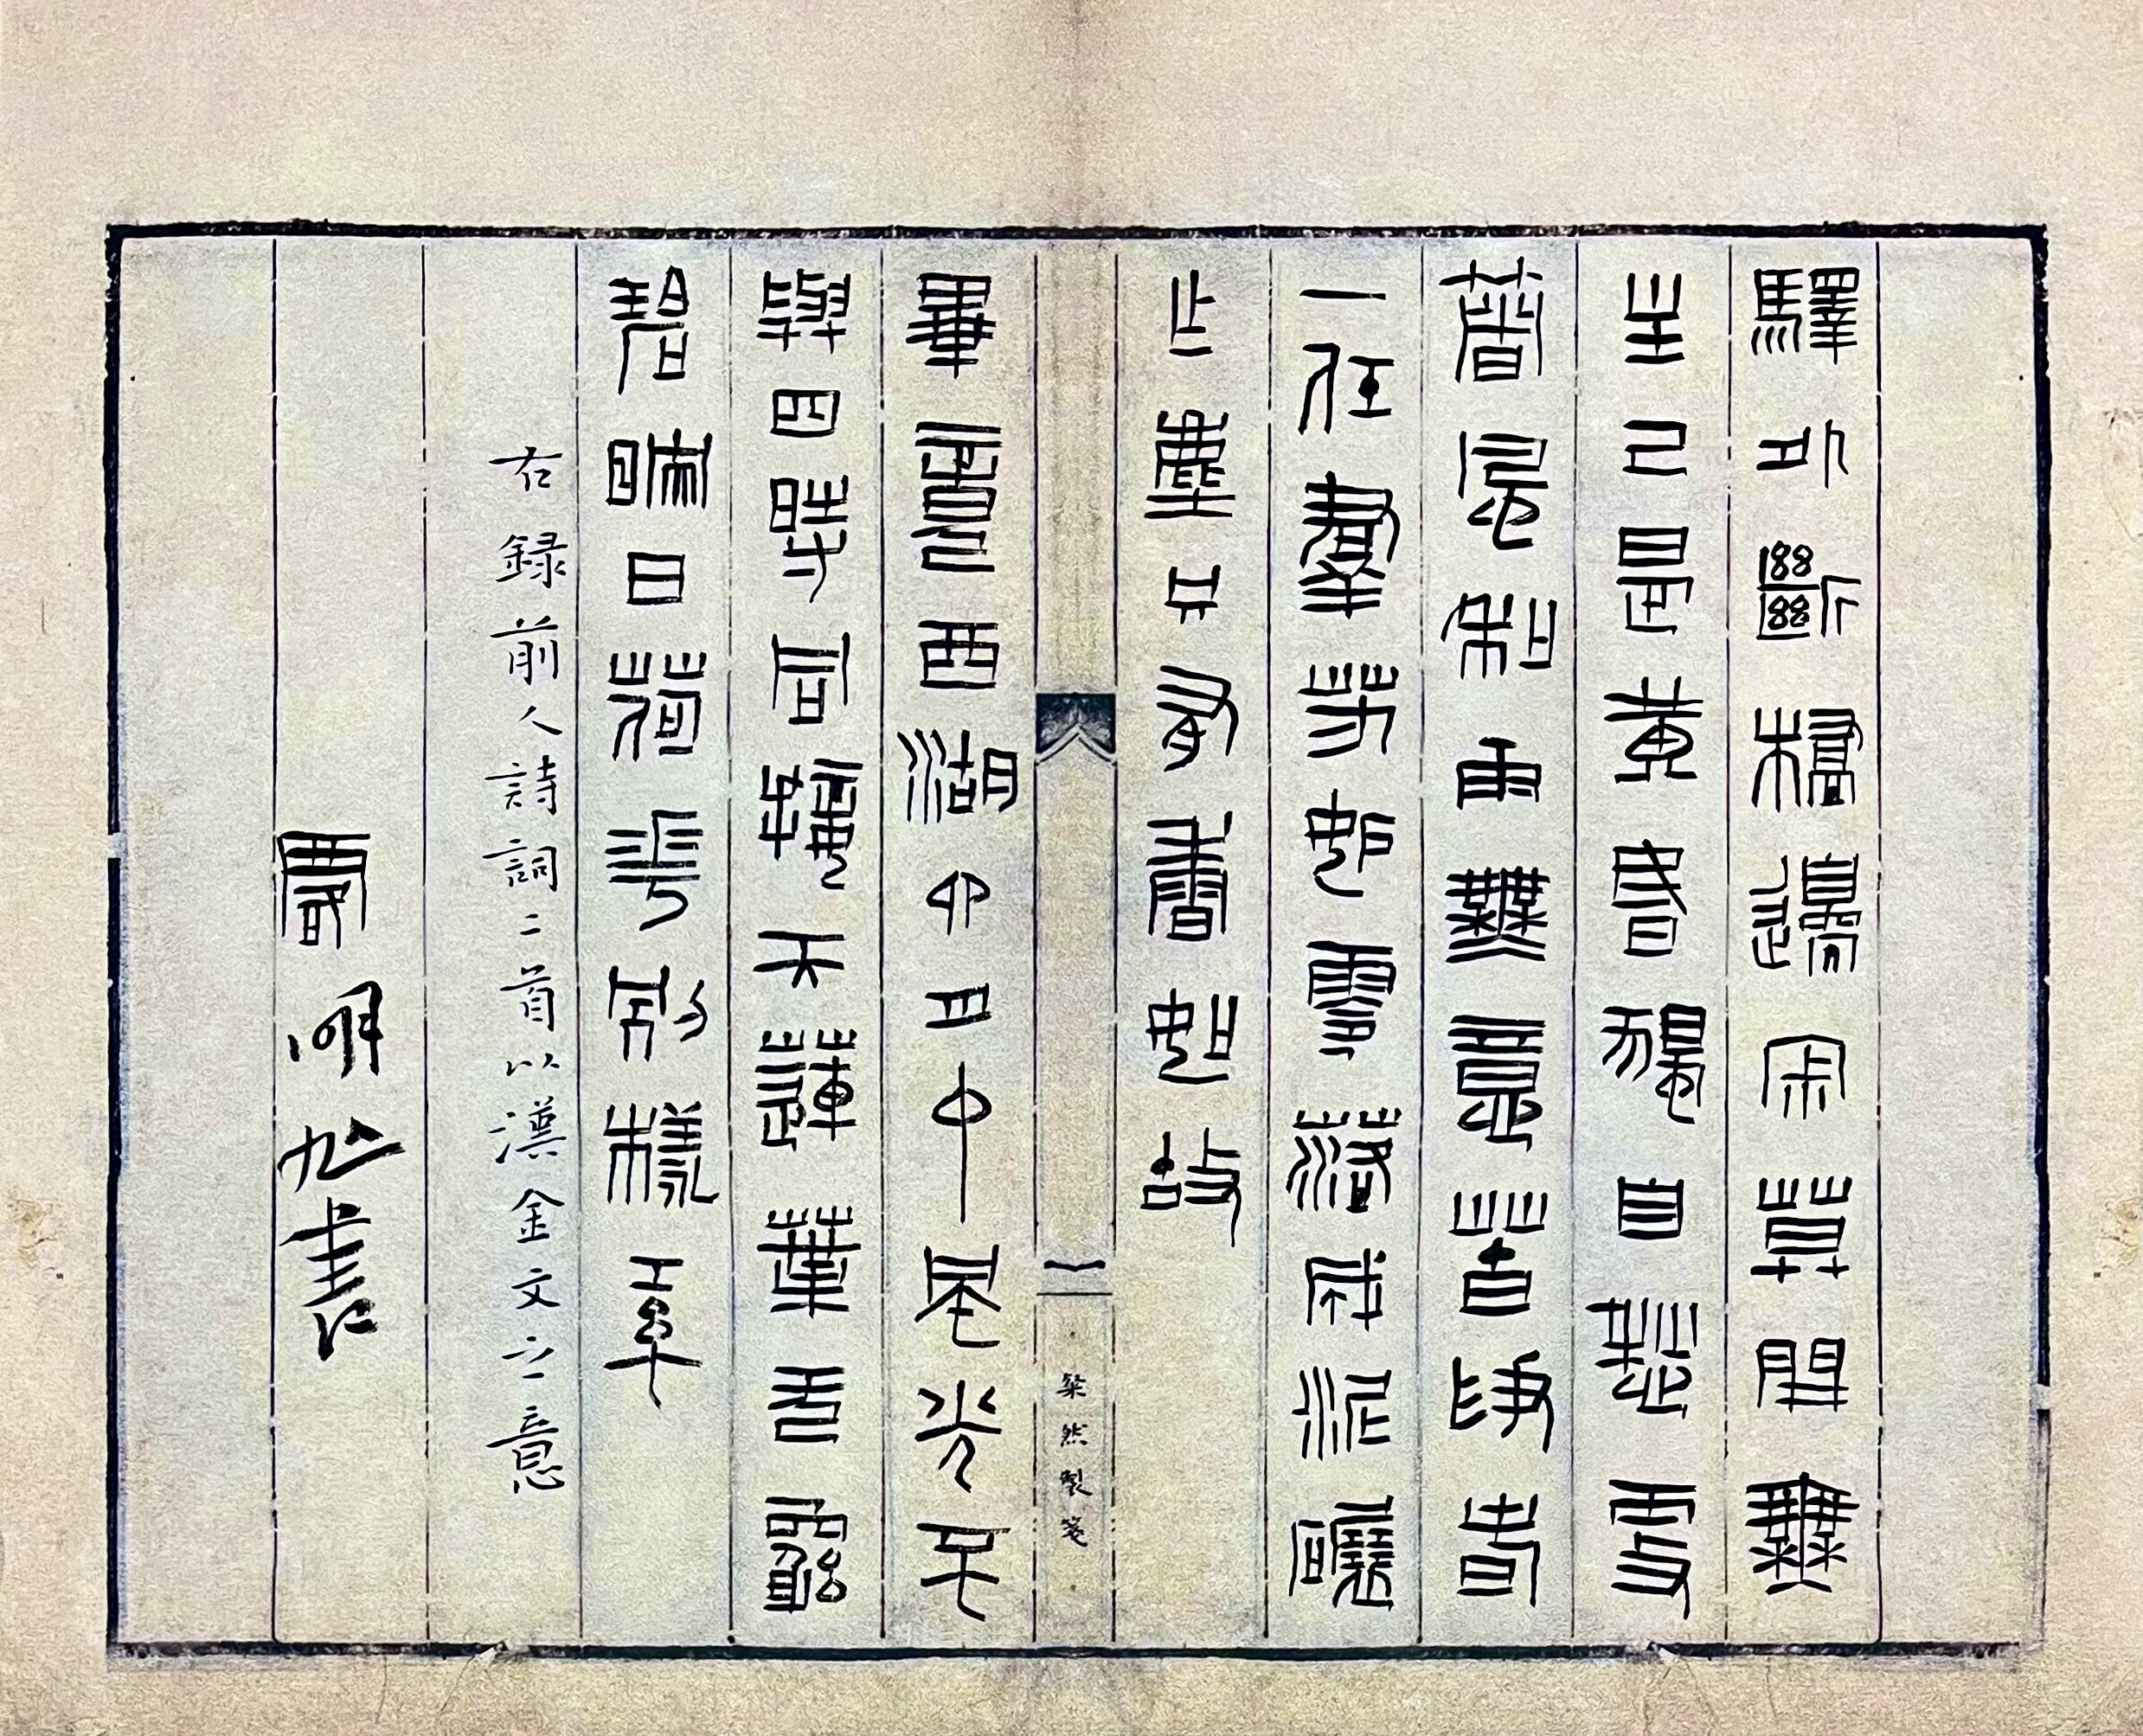 驛外斷橋邊寂寞開無
主已是黃昏獨自愁更
著風和雨無意苦爭春
一任羣芳妒零落成泥碾
作塵只有香如故
一
粲然製箋
畢竟西湖六月中風光不
與四時同接天蓮葉無窮
碧映日荷花別樣紅
右録前人詩詞二首以漢金文之意
明書